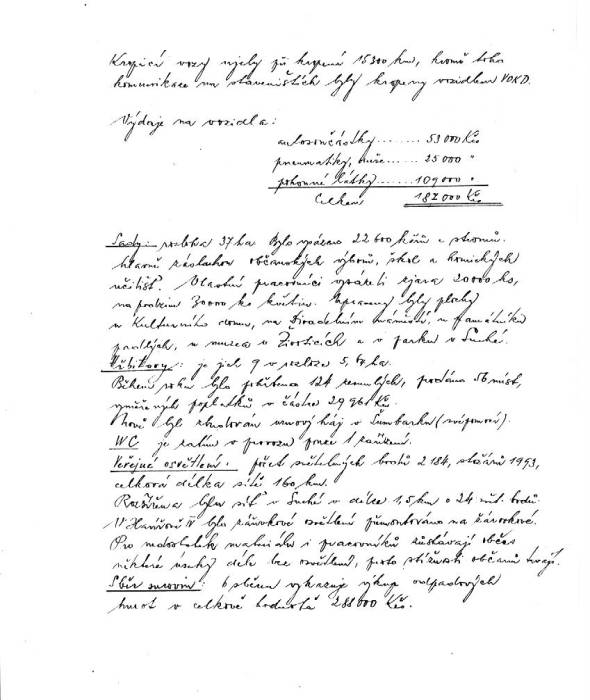 Kropicí vozy ujely při kropení 15300 km, kromě toho
komunikace na staveništích byly kropeny vozidlem VOKD.
Výdaje na vozidla:
autosoučástky ........ 53 000 Kčs
pneumatiky, duše ...... 25 000 "
pohonné látky ....... 109 000 "
Celkem 187 000 Kčs
Sady: rozloha 37 ha Bylo vysázeno 22 600 keřů a stromů.
hlavně zásluhou občanských výborů, škol a hornických
učilišť. Vlastní pracovníci vysázeli z jara 20 000 ks,
na podzim 30 000 ks květin. Upraveny byly plochy
u Kulturního domu, na Divadelním náměstí, u památníku
padlých, u muzea v Životicích a v parku v Suché.
Hřbitovy: je jich 9 v rozloze 5,
Během roku bylo pohřbeno 124 zemřelých, prodáno 56 míst,
poplatků v částce 29 961 Kčs.
Nově byl zbudován urnový háj v Šumbarku (svépomocí).
WC je zatím v provozu pouze 1 zařízení.
Veřejné osvětlení: počet světelných bodů 2 184, stožárů 1993,
celková délka sítě 160 km.
Rozšířena byla síť v Suché v délce 1,5 km o 24 svět. bodů.
V Havířově IV bylo osvětlení přemontováno na zářivkové.
Pro nedostatek materiálu i pracovníků zůstávají občas
některé úseky déle bez osvětlení, proto stížnosti občanů trvají.
Sběr surovin: 6 sběren vykazuje výkup odpadových
hmot v celkové hodnotě 288 000 Kčs.